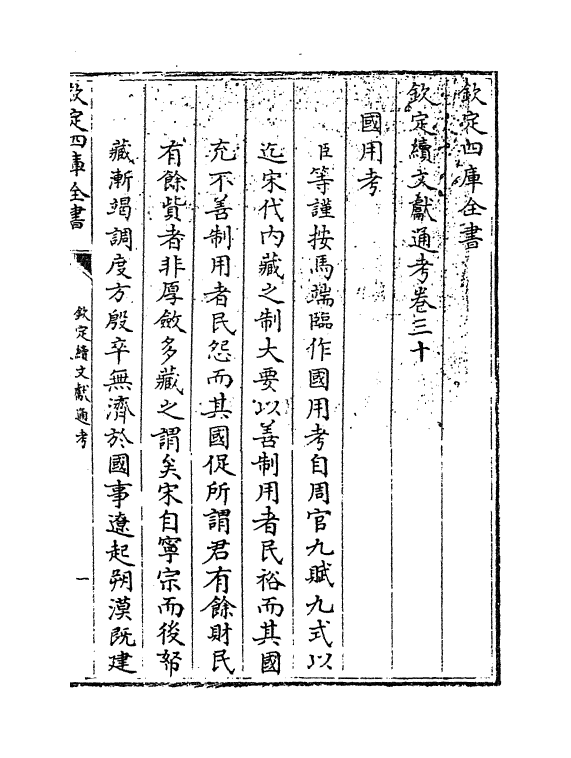 欽定四庫全書
欽定續文獻通考卷三十
國用考
臣等謹按馬端臨作國用考自周官九賦九式以
迄宋代內藏之制大要以善制用者民裕而其國
充不善制用者民怨而其國促所謂君有餘財民
有餘貲者非厚斂多藏之謂矣宋自寧宗而後帑
藏漸竭調度方殷卒無濟於國事遼起朔漠既建
欽定四庫全書
欽定續文獻通考
一